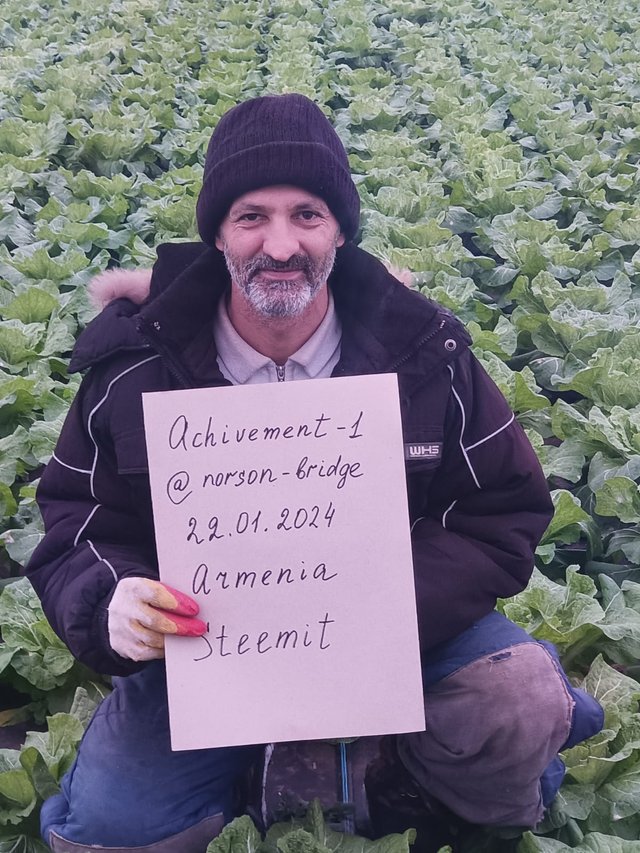 Achivement-1
@norson-bridge
22.01.2024
Armenia
Steemit
WHS